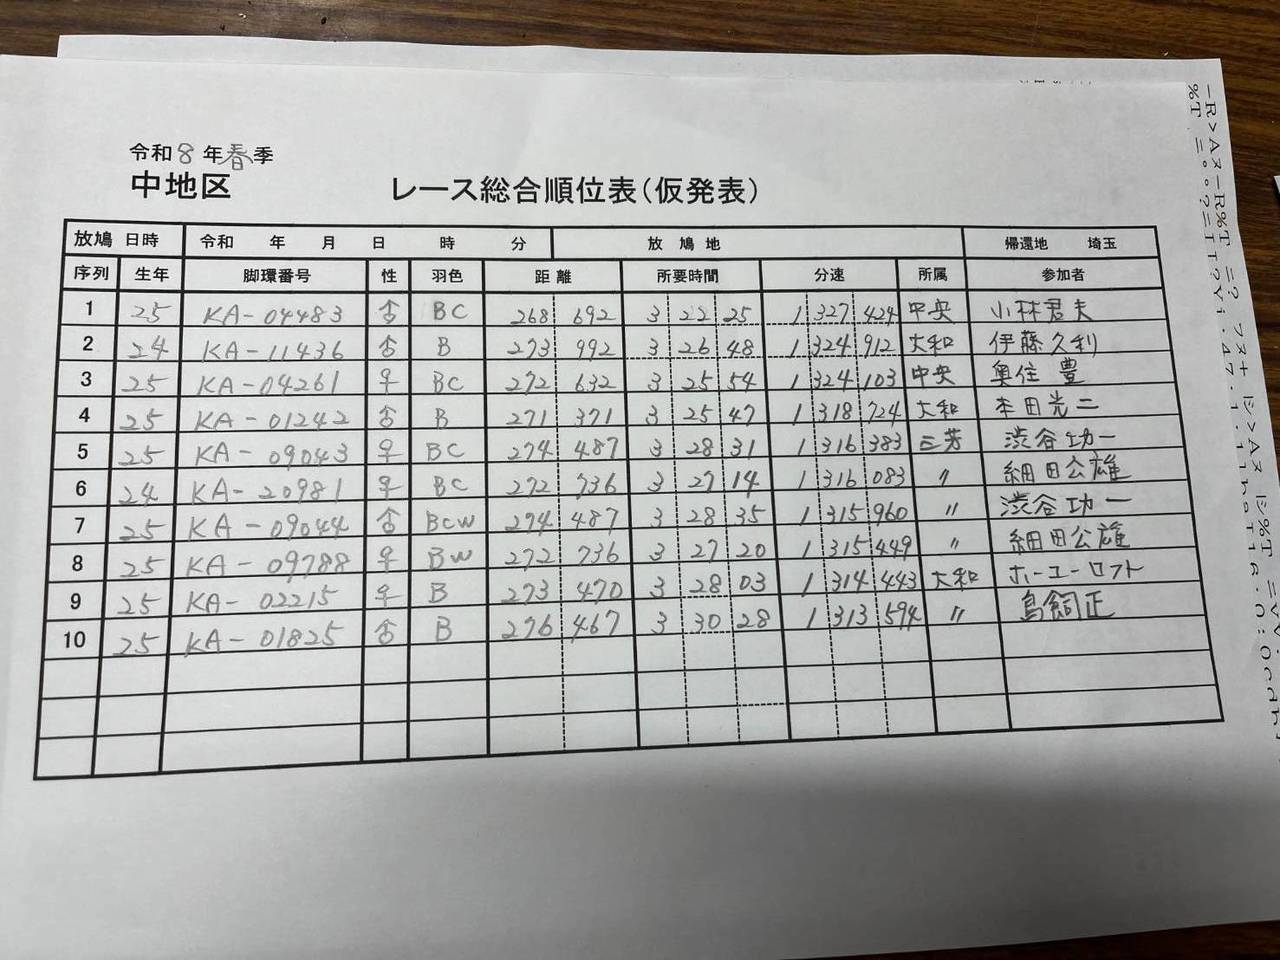 令和8年春季
中地区 レース総合順位表(仮発表)
放鳩 日時 令和 年 月 日 時 分 放鳩地 帰還地 埼玉
序列 生年 脚環番号 性 羽色 距離 所要時間 分速 所属 参加者
1 25 KA-04483 合 BC 268 692 3 22 25 1 327 424 中央 小林君夫
2 24 KA-11436 合 B 273 992 3 26 48 1 324 912 大和 伊藤久利
3 25 KA-04261 ♀ BC 272 632 3 25 54 1 324 103 中央 奥住 豊
4 25 KA-01242 合 B 271 371 3 25 47 1 318 724 大和 本田光二
5 25 KA-09043 ♀ BC 274 487 3 28 31 1 316 383 三芳 渋谷功一
6 24 KA-20981 ♀ BC 272 736 3 27 14 1 316 083 〃 細田公雄
7 25 KA-09044 合 BCW 274 487 3 28 35 1 315 960 〃 渋谷功一
8 25 KA-09788 ♀ BW 272 736 3 27 20 1 315 449 〃 細田公雄
9 25 KA-02215 ♀ B 273 470 3 28 03 1 314 443 大和 ホーユーロフト
10 25 KA-01825 合 B 276 467 3 30 28 1 313 594 〃 鳥飼正